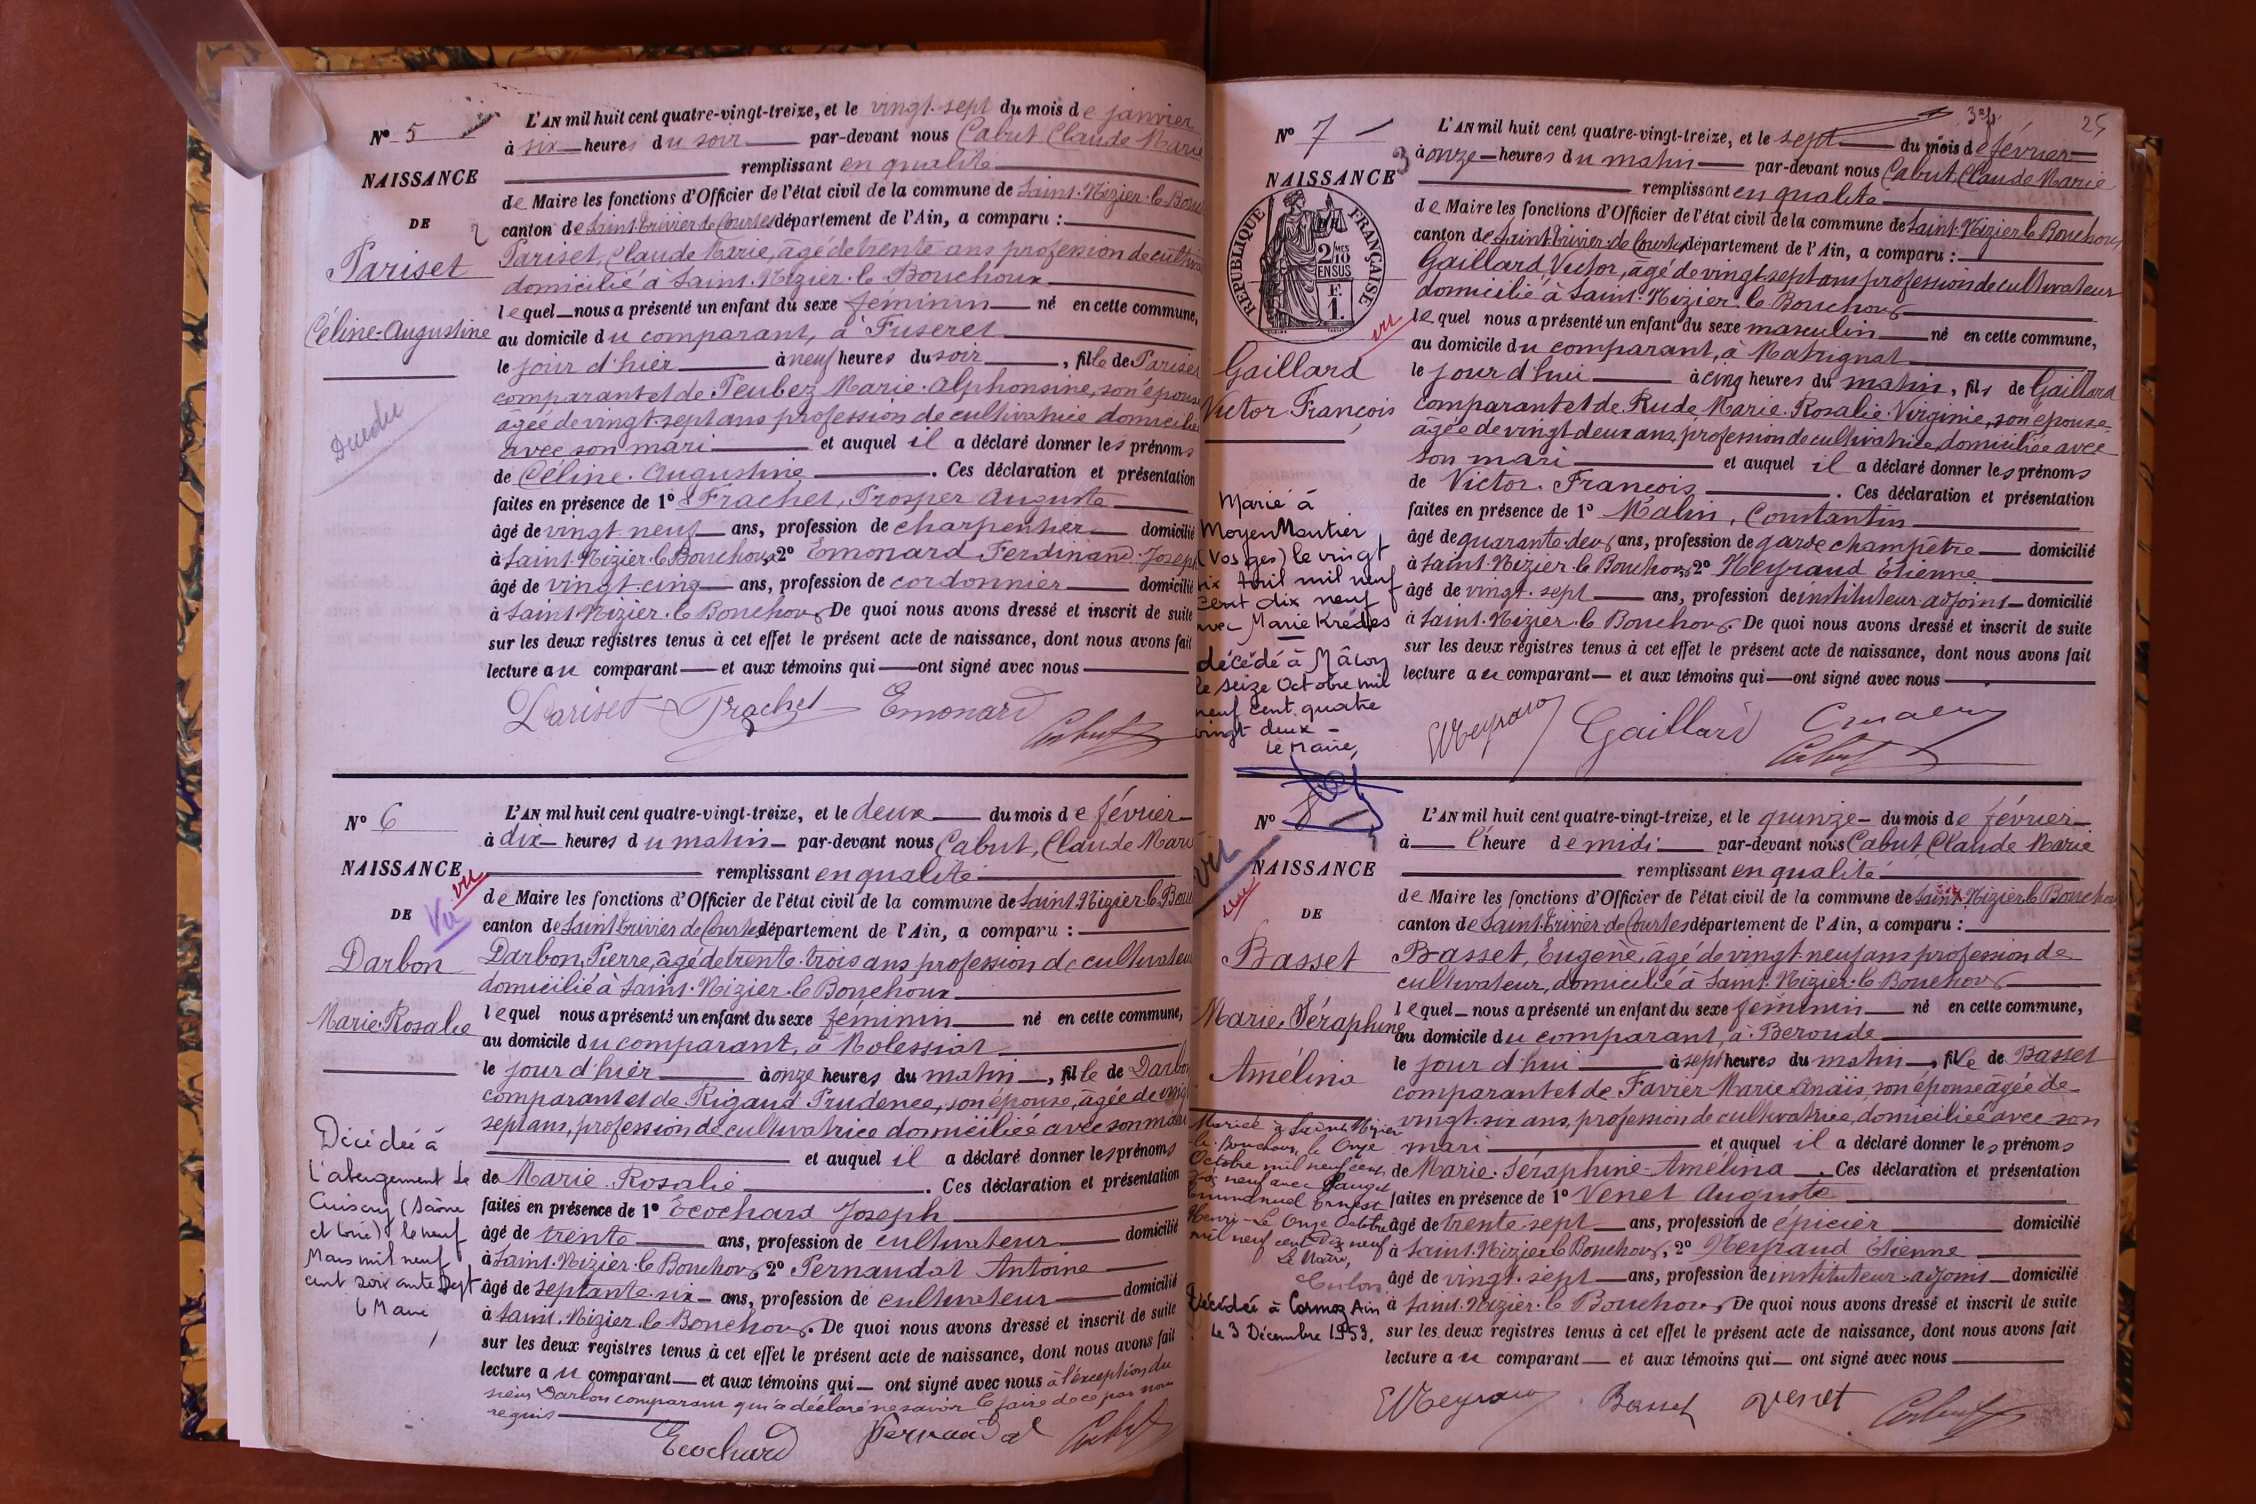 N° 5
NAISSANCE
DE
Pariset
Céline-Augustine
L'AN mil huit cent quatre-vingt-treize, et le vingt-sept du mois de janvier
à six heures du soir par-devant nous Cabut Claude Marie
remplissant en qualité
de Maire les fonctions d'Officier de l'état civil de la commune de Saint-Nizier-le-Bou
canton de Saint-Trivier-de-Courtes département de l'Ain, a comparu :
Pariset, Claude Marie, âgé de trente ans profession de cultiva
domicilié à Saint-Nizier-le-Bouchoux
lequel nous a présenté un enfant du sexe féminin né en cette commune,
au domicile du comparant, à Fuseret
le jour d'hier à neuf heures du soir, fille de Pariset
comparant et de Peubez Marie-Alphonsine, son épouse
âgée de vingt-sept ans profession de cultivatrice domiciliée
avec son mari et auquel il a déclaré donner les prénoms
de Céline-Augustine. Ces déclaration et présentation
faites en présence de 1° Frachet, Prosper Auguste
âgé de vingt-neuf ans, profession de charpentier domicilié
à Saint-Nizier-le-Bouchoux, 2° Emonard Ferdinand-Joseph
âgé de vingt-cinq ans, profession de cordonnier domicilié
à Saint-Nizier-le-Bouchoux. De quoi nous avons dressé et inscrit de suite
sur les deux registres tenus à cet effet le présent acte de naissance, dont nous avons fait
lecture au comparant et aux témoins qui ont signé avec nous
Pariset Frachet Emonard
Cabut
N° 6
NAISSANCE
vu
DE
Vu
Darbon
Marie-Rosalie
Décédée à
L'abergement de
Cuisery (Saône
et Loire) le neuf
Mars mil neuf
cent soixante sept
le Maire
L'AN mil huit cent quatre-vingt-treize, et le deux du mois de février
à dix heures du matin par-devant nous Cabut, Claude Marie
remplissant en qualité
de Maire les fonctions d'Officier de l'état civil de la commune de Saint-Nizier-le-Bou
canton de Saint-Trivier-de-Courtes département de l'Ain, a comparu :
Darbon Pierre, âgé de trente-trois ans profession de cultivateur
domicilié à Saint-Nizier-le-Bouchoux
lequel nous a présenté un enfant du sexe féminin né en cette commune,
au domicile du comparant, à Molessiat
le jour d'hier à onze heures du matin, fille de Darbon
comparant et de Rigaud Prudence, son épouse, âgée de vingt
sept ans, profession de cultivatrice domiciliée avec son mari
et auquel il a déclaré donner les prénoms
de Marie-Rosalie. Ces déclaration et présentation
faites en présence de 1° Ecochard Joseph
âgé de trente ans, profession de cultivateur domicilié
à Saint-Nizier-le-Bouchoux, 2° Pernaudat Antoine
âgé de septante-six ans, profession de cultivateur domicilié
à Saint-Nizier-le-Bouchoux. De quoi nous avons dressé et inscrit de suite
sur les deux registres tenus à cet effet le présent acte de naissance, dont nous avons fait
lecture au comparant et aux témoins qui ont signé avec nous à l'exception du
sieur Darbon comparant qui a déclaré ne savoir le faire de ce par nous
requis
Ecochard Pernaudat Cabut
25
N° 7
NAISSANCE
REPUBLIQUE FRANÇAISE
2/10 MES
EN SUS
F.
1.
vu
Gaillard
Victor François
Marié à
MoyenMoutier
(Vosges) le vingt
six Avril mil neuf
cent dix neuf
avec Marie Krédes
décédé à Mâcon
le seize Octobre mil
neuf cent quatre
vingt deux -
le Maire,
L'AN mil huit cent quatre-vingt-treize, et le sept du mois de février
à onze heures du matin par-devant nous Cabut Claude Marie
remplissant en qualité
de Maire les fonctions d'Officier de l'état civil de la commune de Saint-Nizier-le-Bouchoux
canton de Saint-Trivier-de-Courtes département de l'Ain, a comparu :
Gaillard, Victor, âgé de vingt-sept ans profession de cultivateur
domicilié à Saint-Nizier-le-Bouchoux
lequel nous a présenté un enfant du sexe masculin né en cette commune,
au domicile du comparant, à Matrignat
le jour d'hui à cinq heures du matin, fils de Gaillard
comparant et de Rude Marie-Rosalie-Virginie, son épouse
âgée de vingt-deux ans, profession de cultivatrice, domiciliée avec
son mari et auquel il a déclaré donner les prénoms
de Victor-François. Ces déclaration et présentation
faites en présence de 1° Malin, Constantin
âgé de quarante-deux ans, profession de garde champêtre domicilié
à Saint-Nizier-le-Bouchoux, 2° Meyraud Etienne
âgé de vingt-sept ans, profession de instituteur-adjoint domicilié
à Saint-Nizier-le-Bouchoux. De quoi nous avons dressé et inscrit de suite
sur les deux registres tenus à cet effet le présent acte de naissance, dont nous avons fait
lecture au comparant et aux témoins qui ont signé avec nous
EMeyraud Gaillard
Cabut
N° 8
vu
NAISSANCE
vu
DE
Basset
Marie-Séraphine
Amélina
Mariée à Saint Nizier
le Bouchoux le Onze
Octobre mil neuf cent
dix neuf avec Pauget
Emmanuel Ernest
Henri - Le Onze Octobre
mil neuf cent Dix neuf
Le Maire,
Décédée à Cormoz Ain
Le 3 Décembre 1953.
L'AN mil huit cent quatre-vingt-treize, et le quinze du mois de février
à l'heure de midi par-devant nous Cabut Claude Marie
remplissant en qualité
de Maire les fonctions d'Officier de l'état civil de la commune de Saint-Nizier-le-Bouchoux
canton de Saint-Trivier-de-Courtes département de l'Ain, a comparu :
Basset, Eugène, âgé de vingt-neuf ans profession de
cultivateur, domicilié à Saint-Nizier-le-Bouchoux
lequel nous a présenté un enfant du sexe féminin né en cette commune,
au domicile du comparant, à Beroude
le jour d'hui à sept heures du matin, fille de Basset
comparant et de Favier Marie-Anaïs, son épouse âgée de
vingt-six ans, profession de cultivatrice, domiciliée avec son
mari et auquel il a déclaré donner les prénoms
de Marie-Séraphine-Amélina. Ces déclaration et présentation
faites en présence de 1° Venet Auguste
âgé de trente-sept ans, profession de épicier domicilié
à Saint-Nizier-le-Bouchoux, 2° Meyraud Etienne
âgé de vingt-sept ans, profession de instituteur-adjoint domicilié
à Saint-Nizier-le-Bouchoux. De quoi nous avons dressé et inscrit de suite
sur les deux registres tenus à cet effet le présent acte de naissance, dont nous avons fait
lecture au comparant et aux témoins qui ont signé avec nous
EMeyraud Basset Venet Cabut